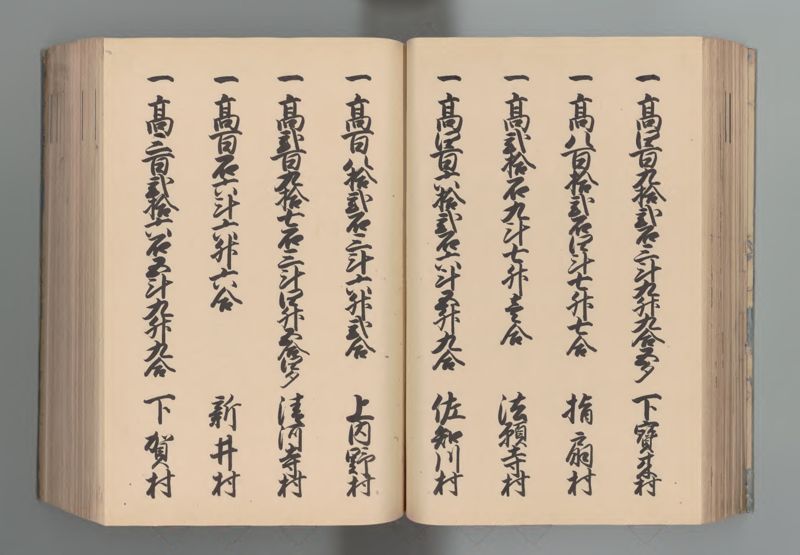 一高四百九拾弐石三斗九升九合五夕 下寳来村
一高八百拾弐石四斗七升七合 指扇村
一高弐拾石九斗七升壱合 法願寺村
一高四百六拾弐石六斗五升九合 佐知川村
一高百八拾弐石三斗六升弐合 上内野村
一高弐百九拾七石三斗四升五合四夕 清河寺村
一高百石六斗六升六合 新井村
一高三百弐拾六石五斗九升九合 下賀村